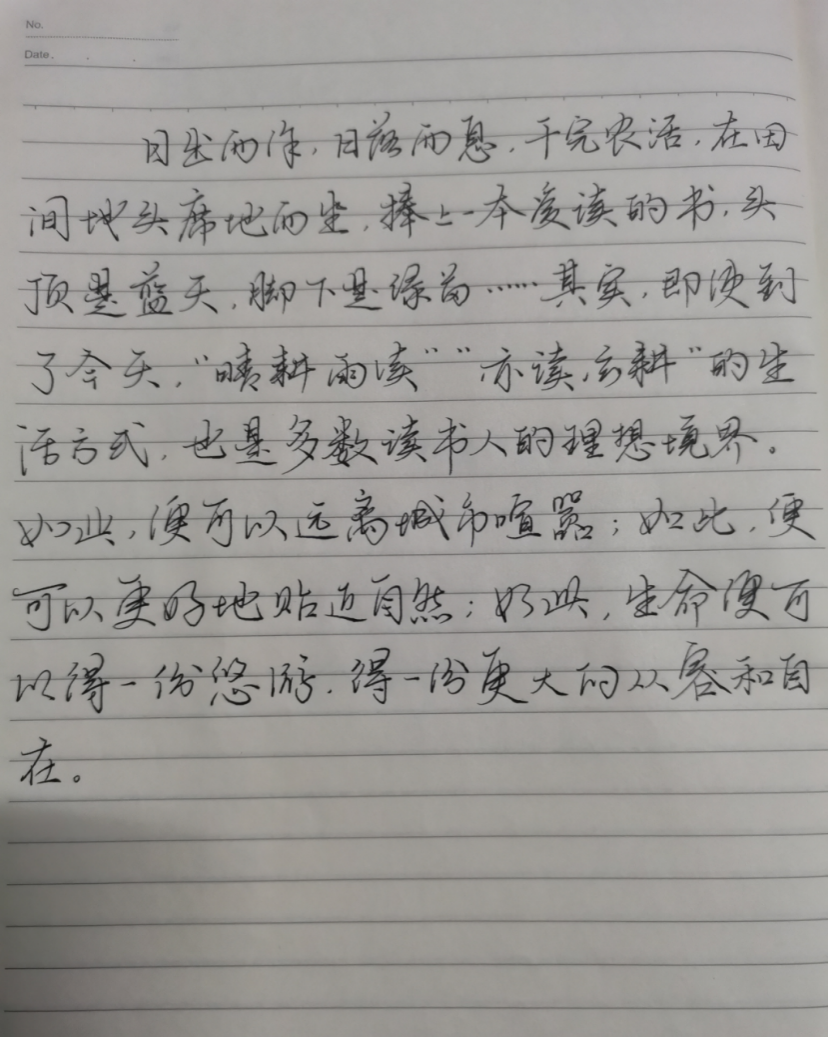 No.
Date.
日出而作，日落而息，干完农活，在田
间地头席地而坐，捧上一本爱读的书，头
顶是蓝天，脚下是绿苗……其实，即使到
了今天，“晴耕雨读”“亦读亦耕”的生
活方式，也是多数读书人的理想境界。
如此，便可以远离城市喧嚣；如此，便
可以更好地贴近自然；如此，生命便可
以得一份悠游，得一份更大的从容和自
在。